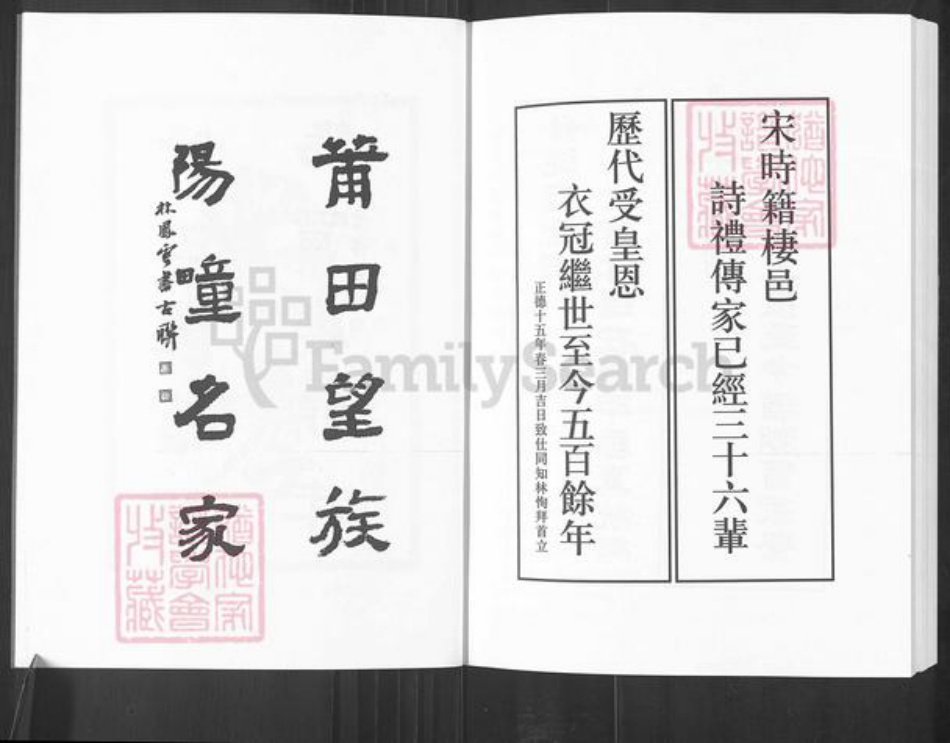 宋時籍棲邑
詩禮傳家已經三十六輩
歷代受皇恩
衣冠繼世至今五百餘年
正德十五年春三月吉日致仕同知林恂拜首立
莆田望族
陽疃名家
林鳳雲書古聯
FamilySearch